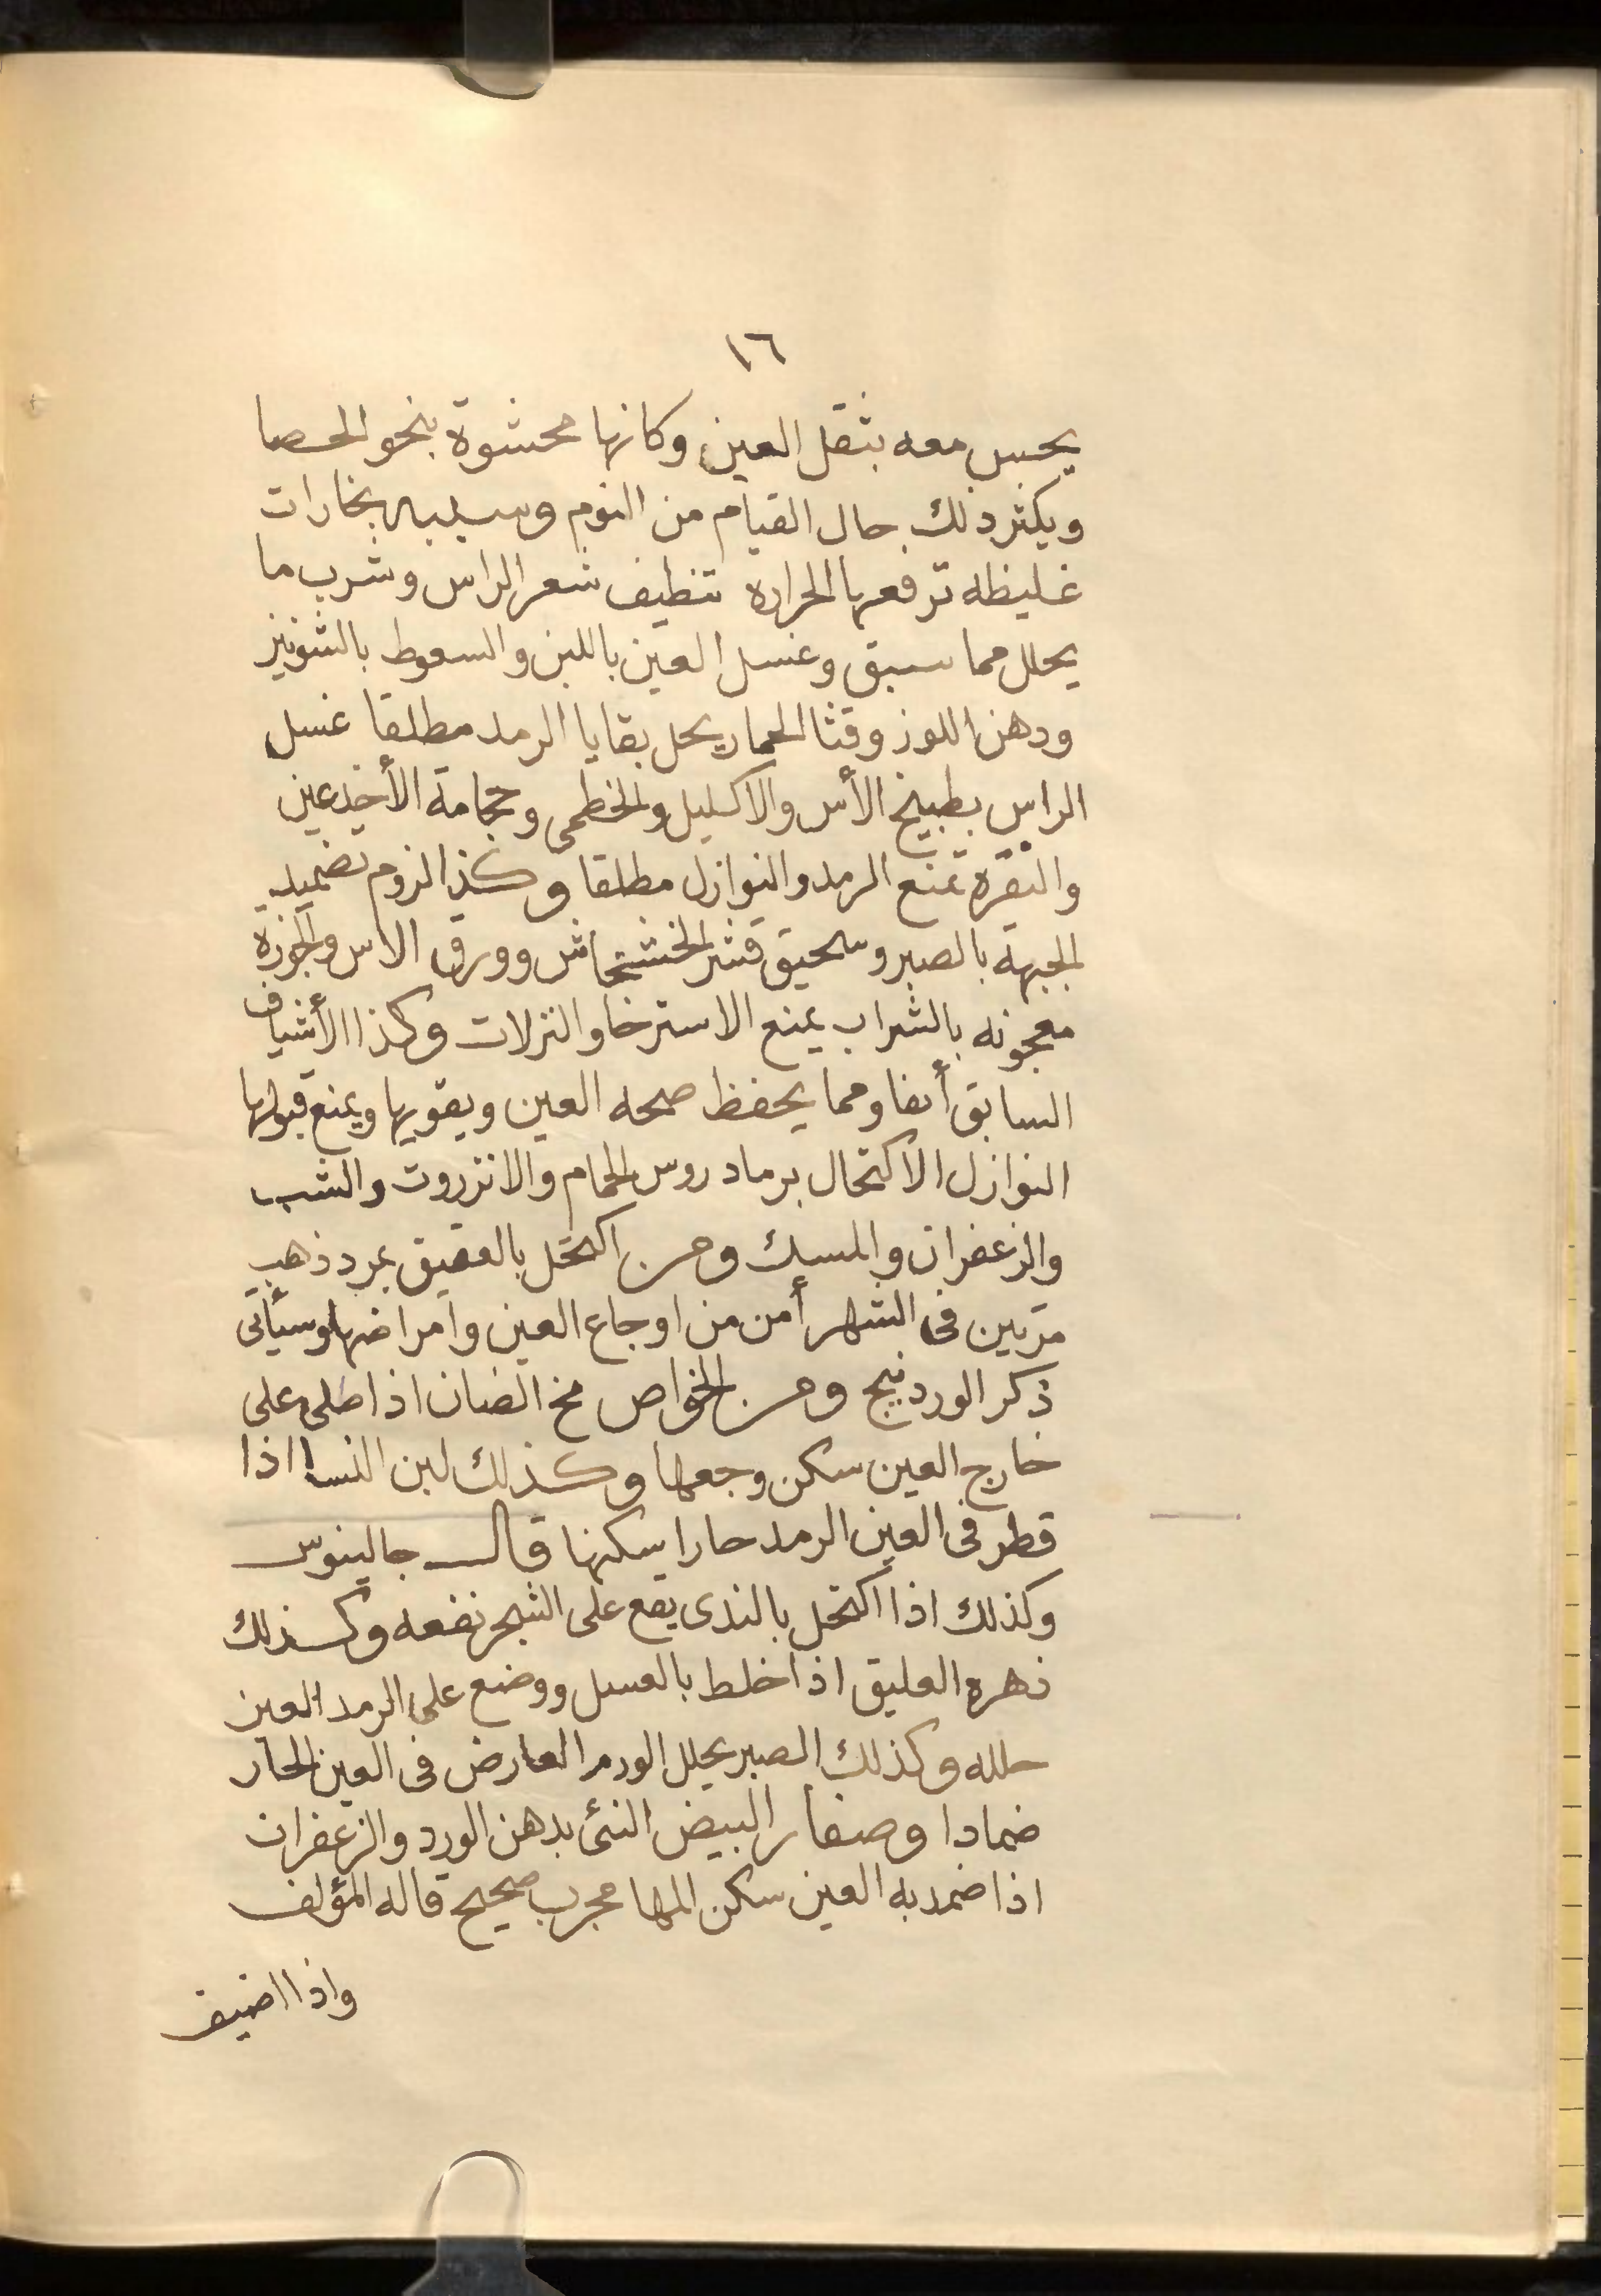 ١٦
يحس معه بثقل العين وكانها محشوة بنحو الحصا
ويكثر ذلك حال القيام من النوم وسببه بخارات
غليظه ترفعها الحراره تنظيف شعر الراس وشرب ما
يحلل مما سبق وغسل العين باللبن والسعوط بالشونيز
ودهن اللوز وقثا الحمار يحل بقايا الرمد مطلقا غسل
الراس بطبيخ الأس والاكليل والخطمى وحجامة الأخدعين
والنقره تمنع الرمد والنوازل مطلقا وكذا لزوم تضميد
الجبهة بالصبر وسحيق قشر الخشخاش وورق الاس والجوزة
معجونه بالشراب يمنع الاسترخا والنزلات وكذا الأشياف
السابق أنفا ومما يحفظ صحه العين ويقويها ويمنع قبولها
النوازل الاكتحال برماد روس الحمام والانزروت والشب
والزعفران والمسك ومن اكتحل بالعقيق بمرد ذهب
مرتين فى الشهر أمن من اوجاع العين وامراضها وسيأتى
ذكر الوردنيج ومن الخواص مخ الضان اذا طلى على
خارج العين سكن وجعها وكذلك لبن النسا اذا
قطر فى العين الرمد حارا سكنها قال جالينوس
وكذلك اذا اكتحل بالندى يقع على الشجر نفعه وكذلك
زهره العليق اذا خلط بالعسل ووضع على الرمد العين
حلله وكذلك الصبر يحلل الورم العارض فى العين الحار
ضمادا وصفار البيض النئ بدهن الورد والزعفران
اذا ضمد به العين سكن المها مجرب صحيح قاله المؤلف
واذا اضيف